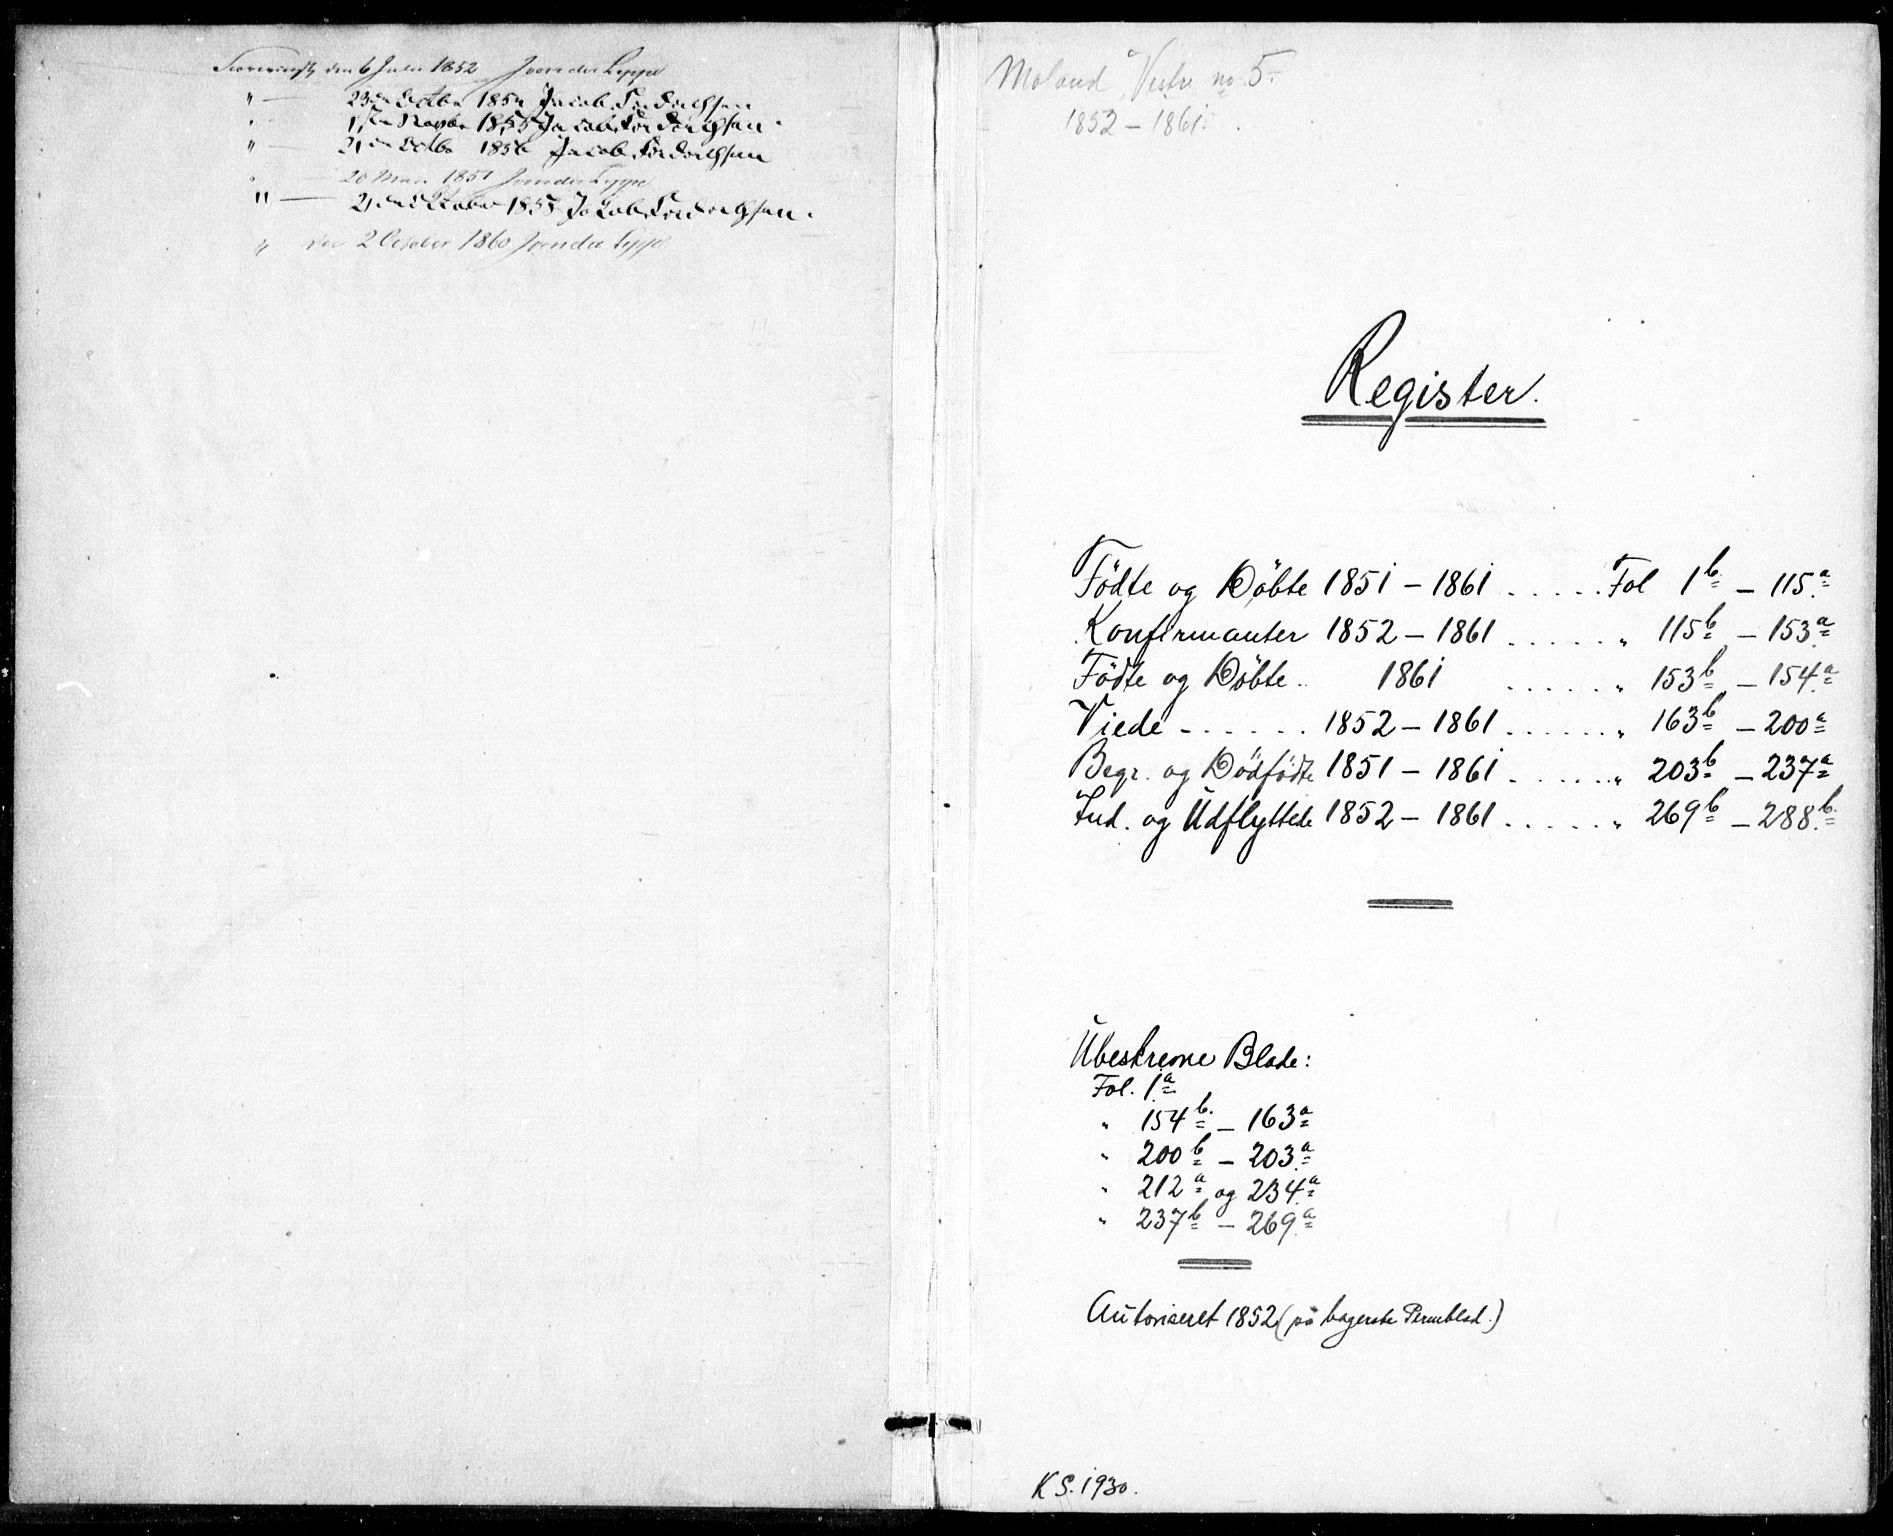 den 6 Juli 1852 J von der Lippe
" — 23de Octbr 1854 Jacob Frederichsen
" 1ste Novbr 1855 Jacob Frederichsen
" — 21de Octbr 1856 Jacob Frederichsen
" — 20 J von der Lippe
" — Jacob Frederichsen.
" den 2 October 1860 J von der Lippe
Moland Vestre no 5.
1852 – 1861.
Register.
Födte og Döbte 1851 – 1861 ..... Fol 1b – 115a
Konfirmanter 1852 – 1861 ..... " 115b – 153a
Födte og Döbte .. 1861 ..... " 153b – 154a
Viede - ..... 1852 – 1861 ..... " 163b – 200a
Begr. og Dödfödte 1851 – 1861 ..... " 203b – 237a
Ind. og Udflyttede 1852 – 1861 ..... " 269b – 288b
Ubeskrevne Blade:
Fol. 1a
" 154b – 163a
" 200b – 203a
" 212a og 234a
" 237b – 269a
Autoriseret 1852 (på bagerste Permblad.)
K S. 1930.